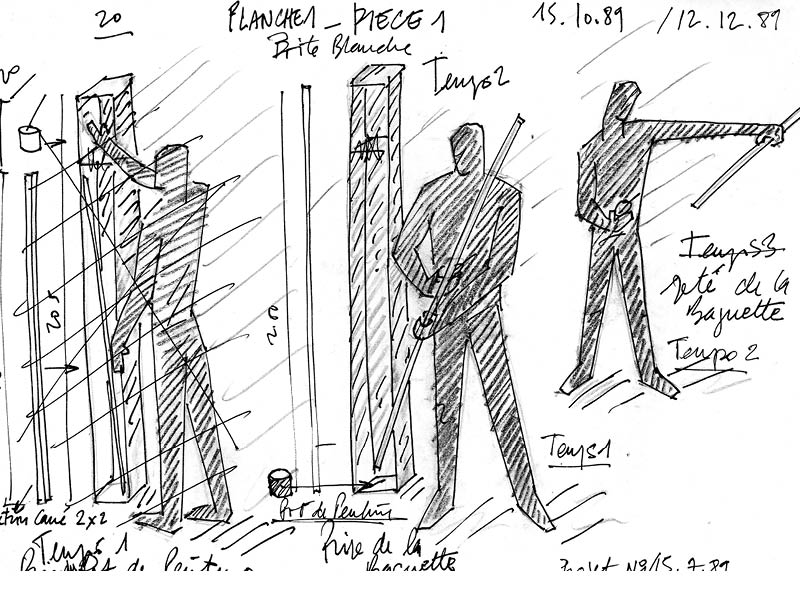 20
PLANCHE 1 _ PIECE 1
15.10.89 / 12.12.89
Boite Blanche
Temps 2
205
200
Temps 3
jeté de la
Baguette
Tempo 2
Temps 1
Pot de Peinture
2x2
Temps 1
Prise de la
Baguette
de Peinture
15.7.89